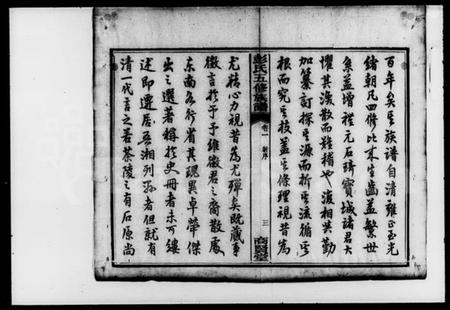 百年矣吾族譜自清雍正至光
緒朝凡四修比來生齒益繁世
系益增禮元石琦寶城諸君大
懼其渙散而難稽也爰相共勤
加纂訂探吾源而析吾流循吾
根而究吾枝蓋吾條理視昔為
彭氏五修族譜
卷一 新序
三
商賢堂
尤精心力視昔為尤殫矣既蕆事
徵言於予予維徵君之裔散處
東南各行省其瑰異卓犖傑
出之選著稱於史冊者未可縷
述即遷居吾湘列孫者但就有
清一代言之若茶陵之有石原尚